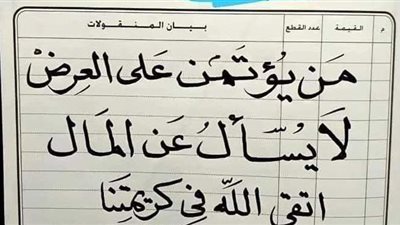 م القيمة عدد القطع بيان المنقولات
مَن يُؤتمَن عَلى العِرضْ
لَا يُسَّألُ عَن المَال
اتقي اللَّه فِي كريمتِنَا